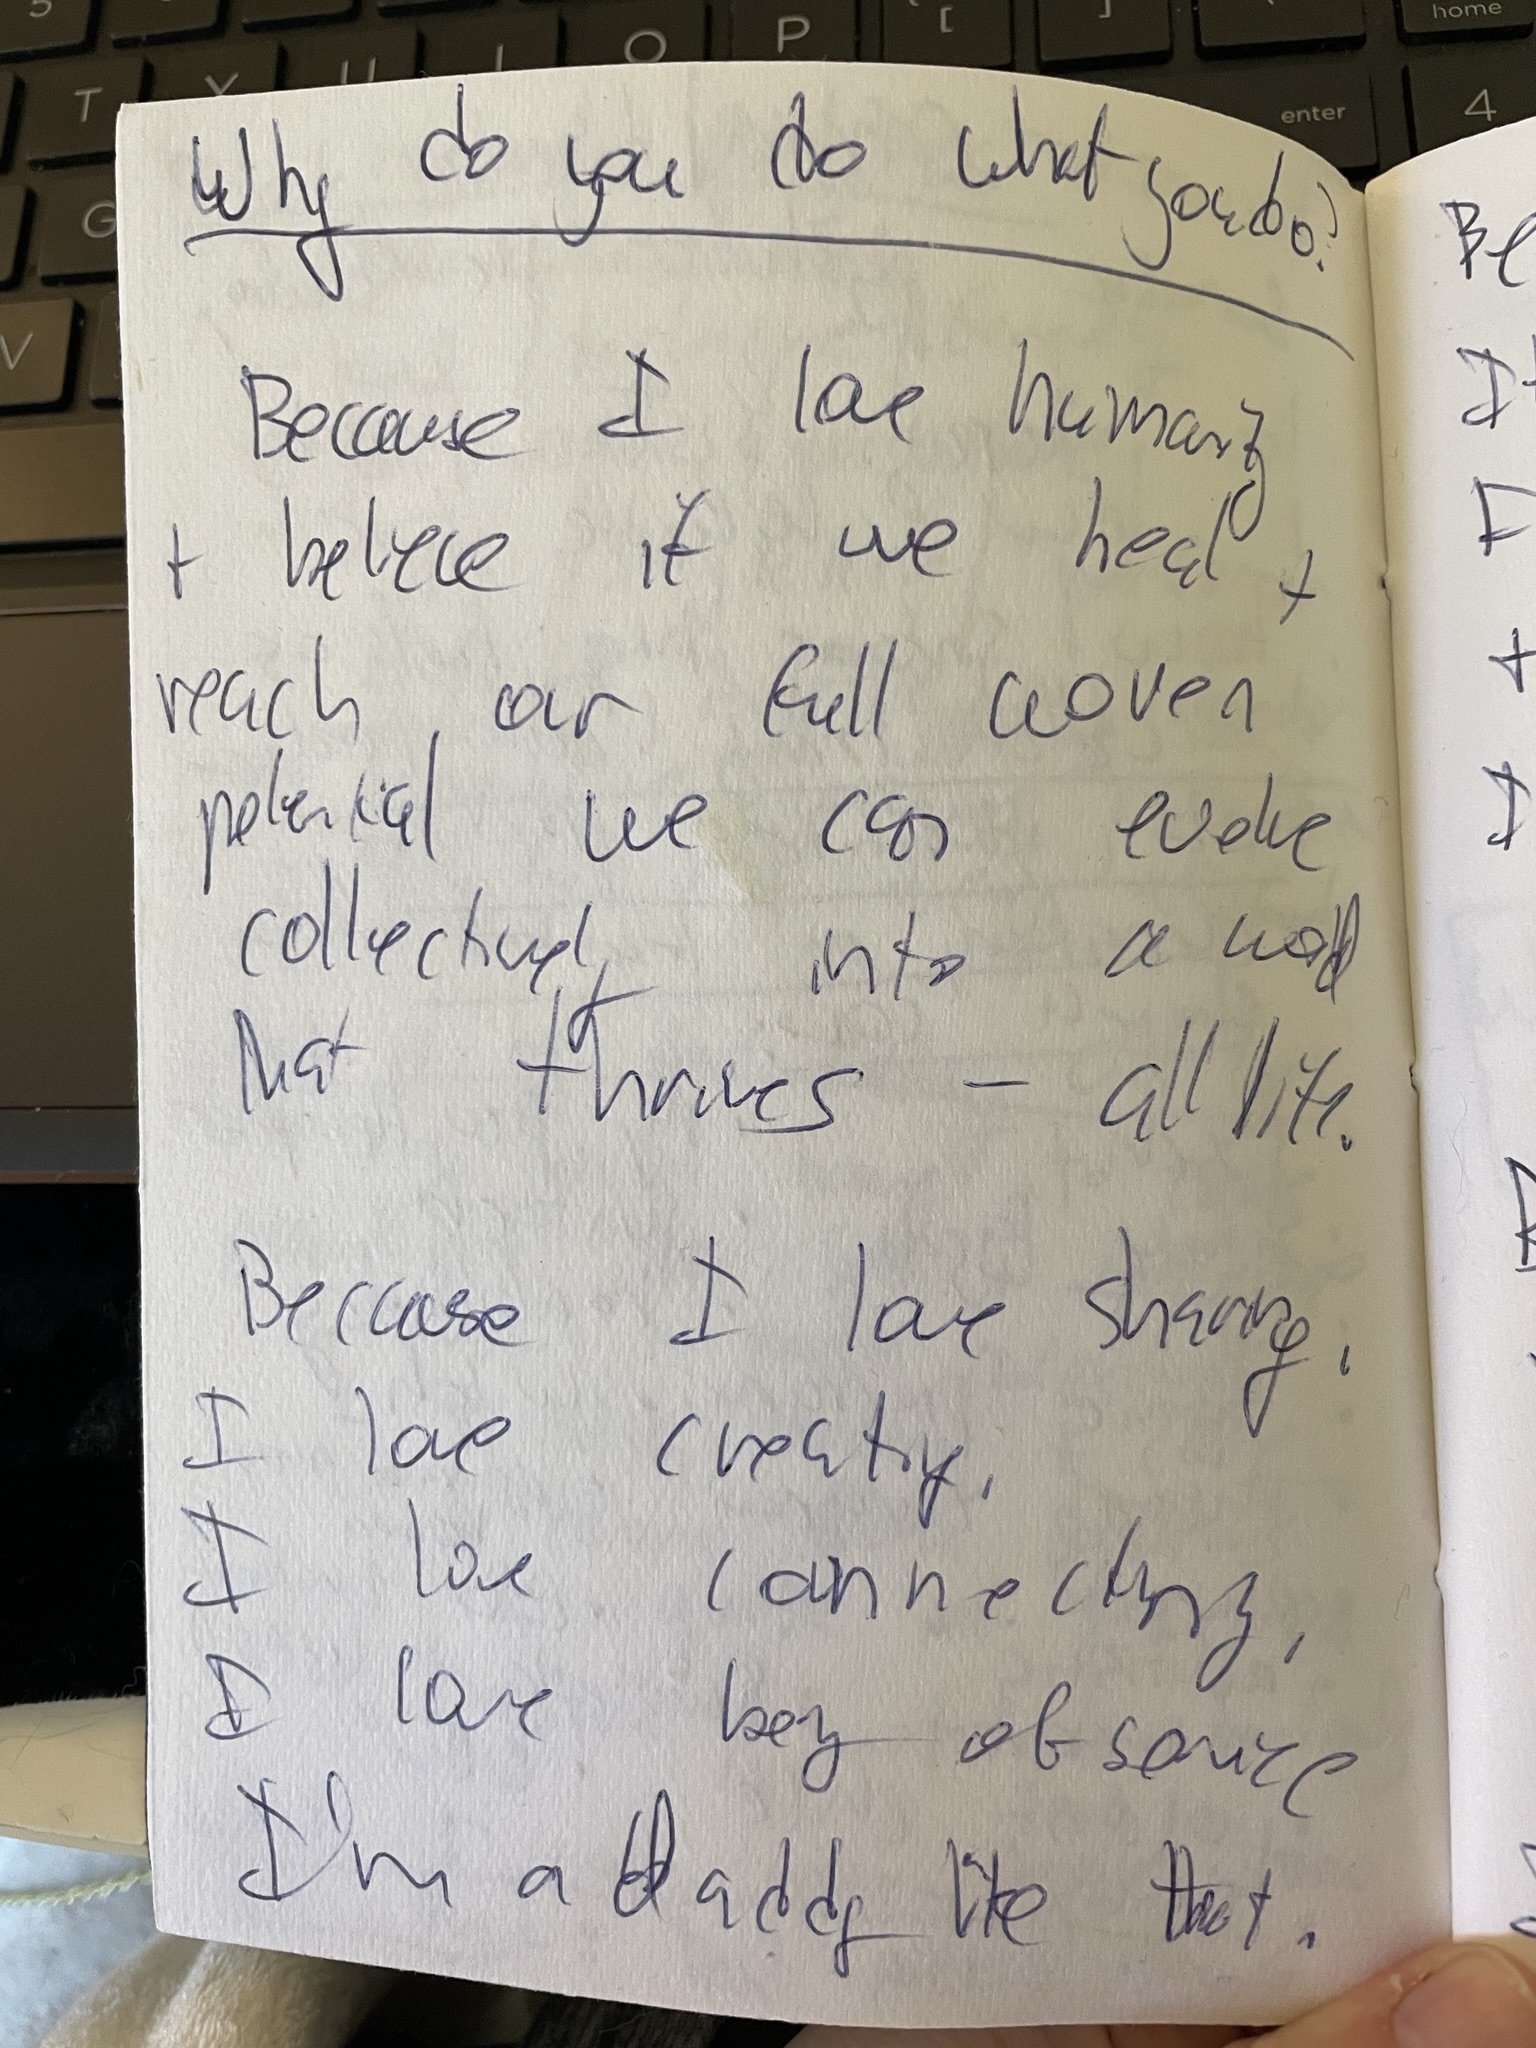 Why do you do what you do?
Because I love humanity
+ believe if we heal +
reach our full woven
potential we can evolve
collectively into a world
that thrives - all life.
Because I love sharing,
I love creating,
I love connecting,
I love being of service
I'm a daddy like that.
Be
It
+
I
5
T
Y
U
I
O
P
[
]
home
enter
4
G
V